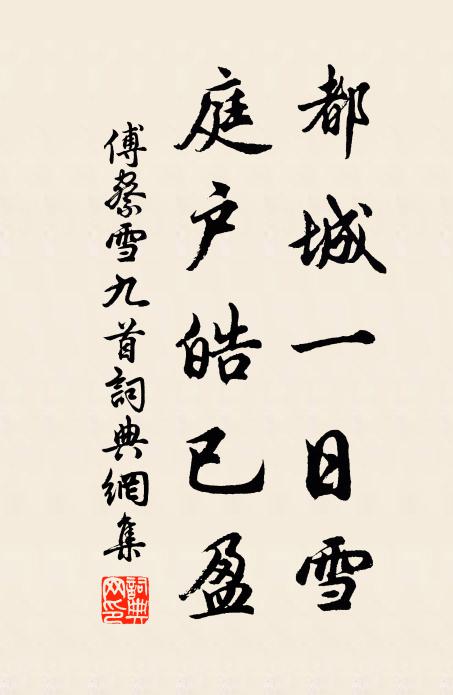 都城一日雪
庭户皓已盈
傅察雪九首詞典網集
詞典網印